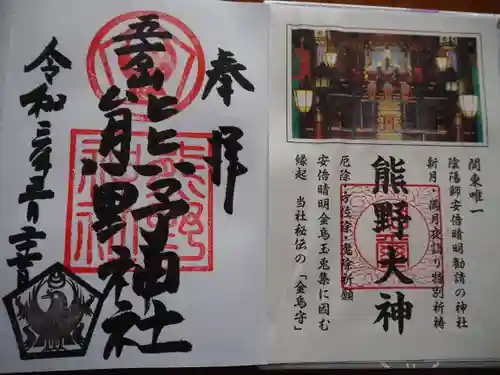 関東唯一
陰陽師安倍晴明勧請の神社
新月・満月夜詣り特別祈祷
熊野大神
厄除・方位除・魔除祈願
安倍晴明金烏玉兎集に因む
縁起 当社秘伝の「金烏守」
奉拝
熊野神社
令和三年五月